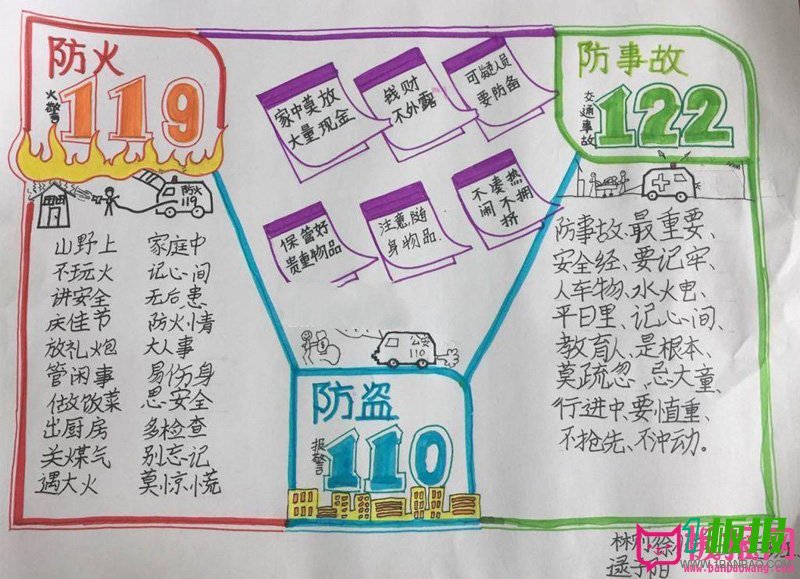 防火
火警
119
防火
119
山野上 家庭中
不玩火 记心间
讲安全 无后患
庆佳节 防火情
放礼炮 大人事
管闲事 易伤身
做饭菜 思安全
出厨房 多检查
关煤气 别忘记
遇大火 莫惊慌
家中莫放
大量现金
钱财
不外露
可疑人员
要防备
保管好
贵重物品
注意随
身物品
不凑热
闹不拥
挤
公安
110
防盗
报警
110
防事故
交通事故
122
防事故、最重要、
安全经、要记牢、
人车物、水火电、
平日里、记心间、
教育人、是根本、
莫疏忽、忌大童、
行进中、要慎重、
不抢先、不冲动。
www.banbaowang.com